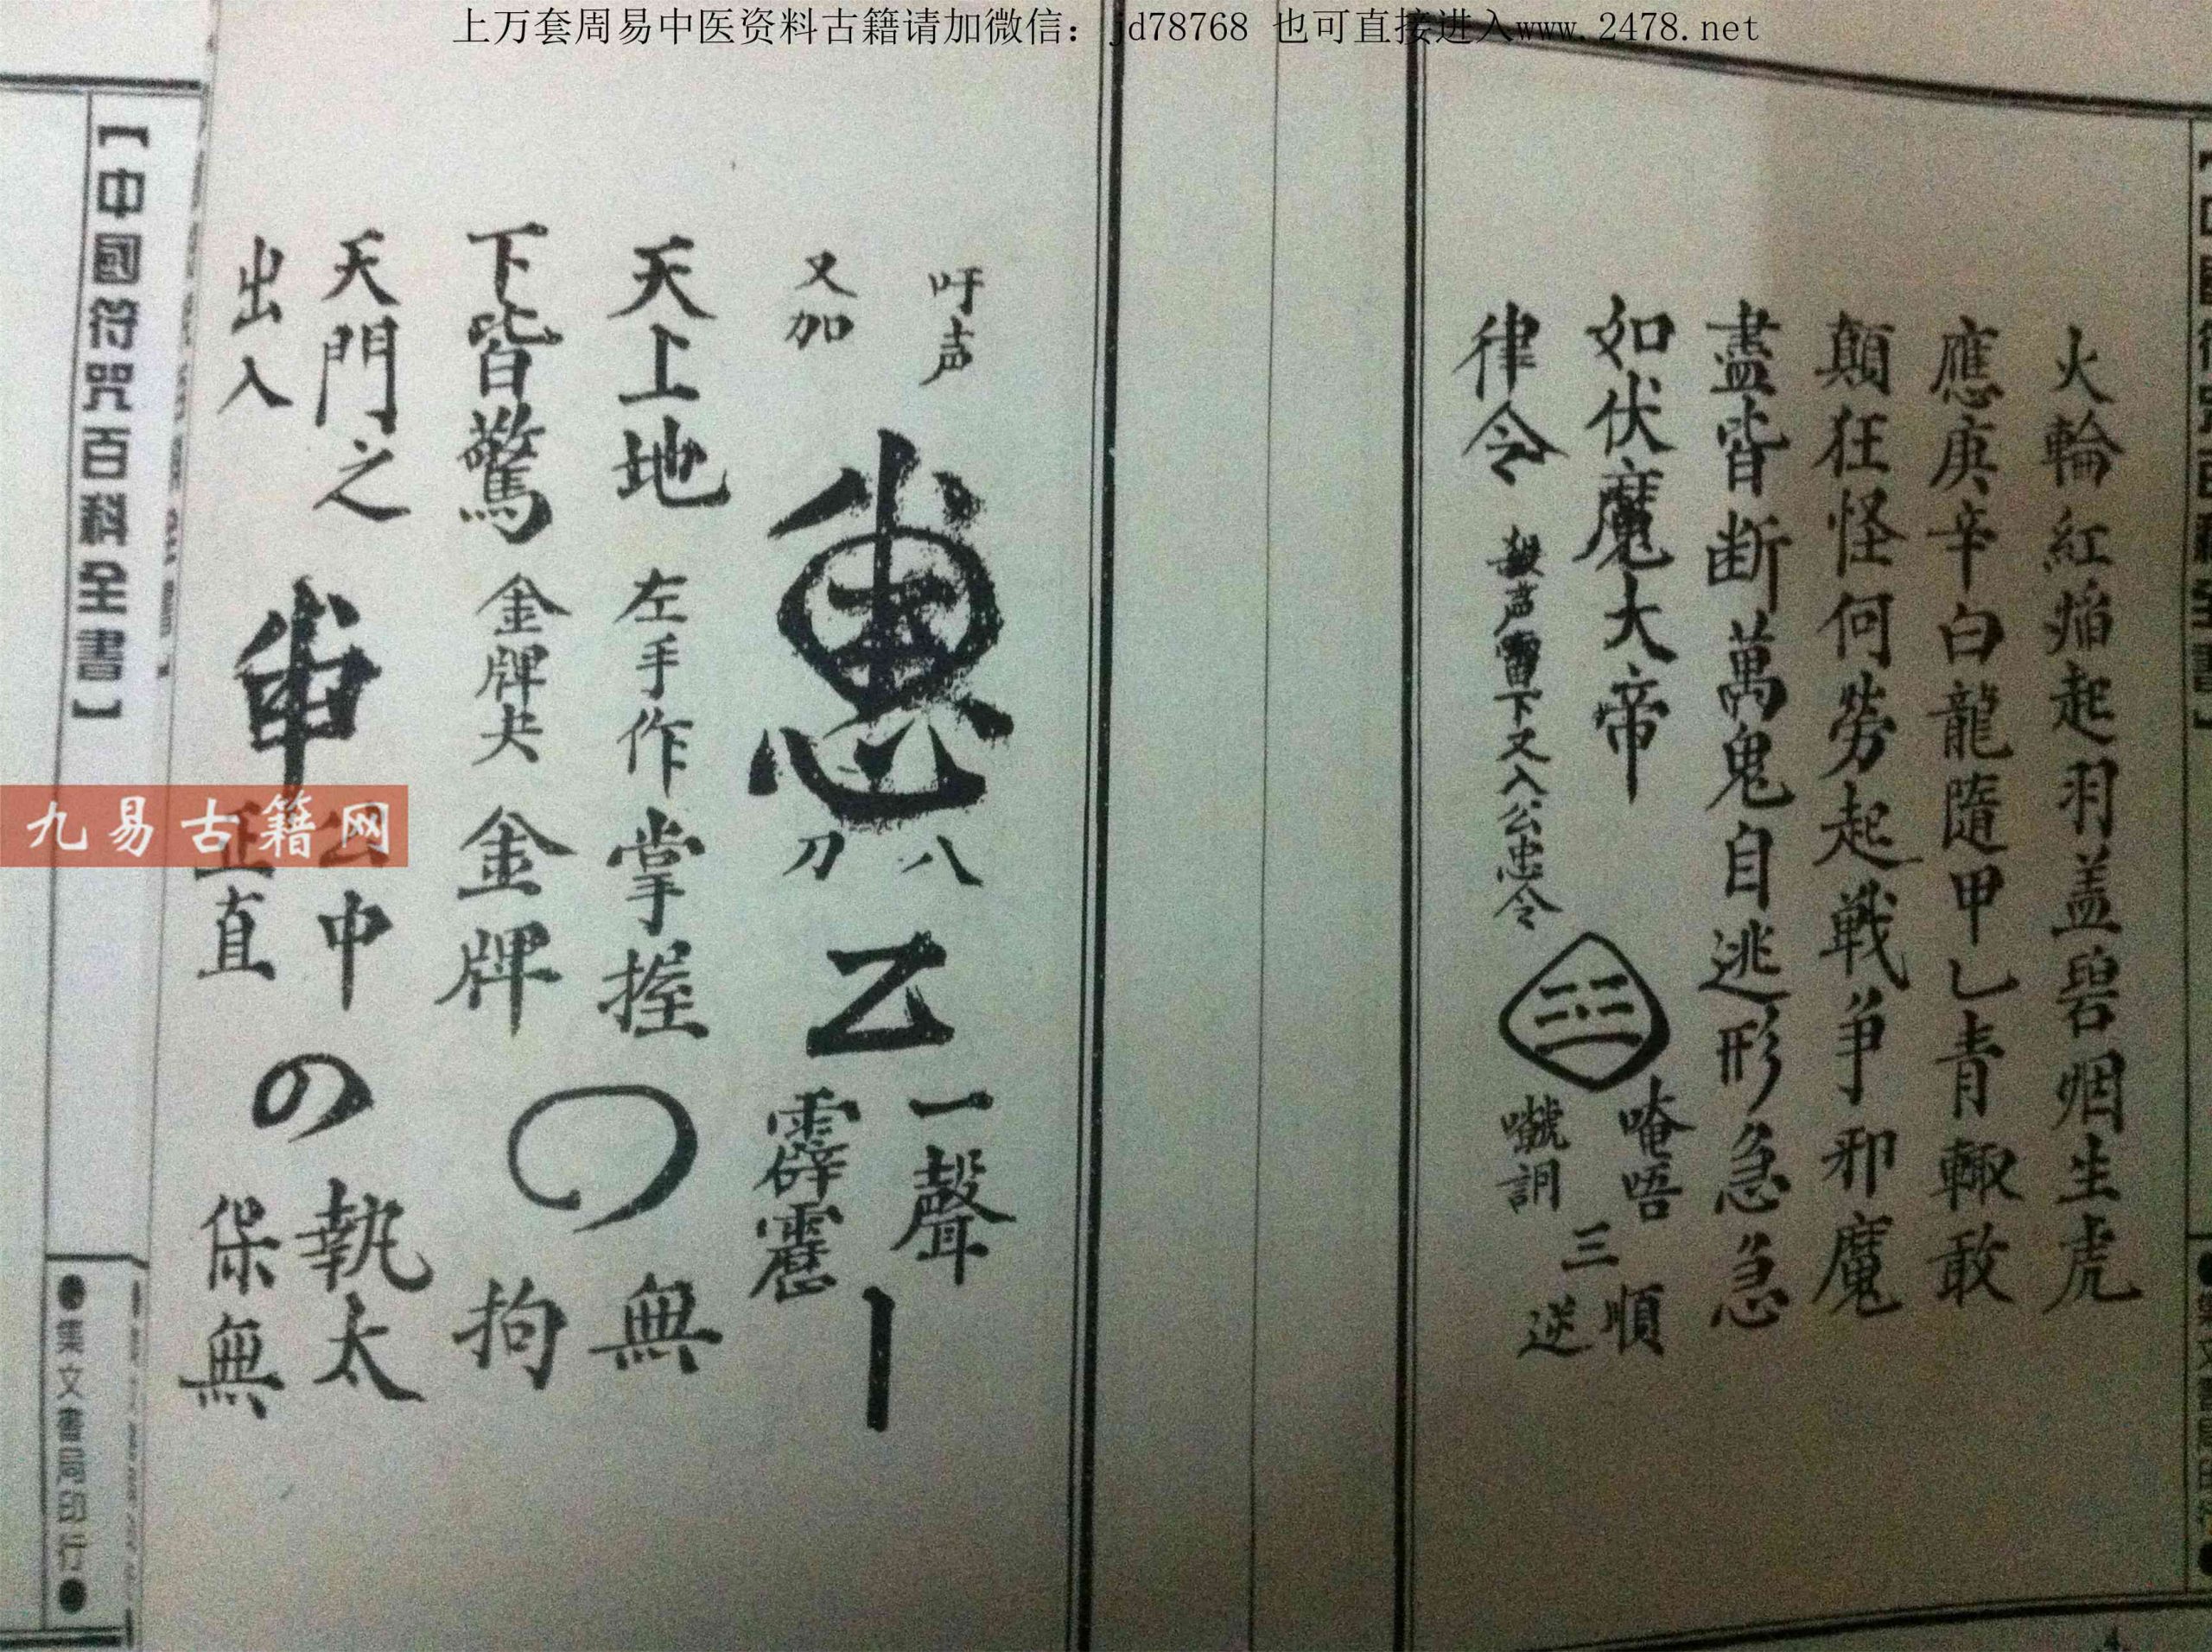 上万套周易中医资料古籍请加微信：jd78768 也可直接进入www.2478.net
火輪紅焰起羽盖碧烟生虎
應庚辛白龍隨甲乙青輙敢
顛狂怪何勞起戰爭邪魔
盡皆断萬鬼自逃形急急
如伏魔大帝
律令
声雷下又入公忠令
唵唔
三
順
逆
吁声
又加
八
刀
乙
一聲
霹靂
天上地 左手作 掌握 無
下皆驚 金牌夬 金牌 拘
天門之 公中 執太
出入 正直 保無
【中國符咒百科全書】
●集文書局印行●
九易古籍网